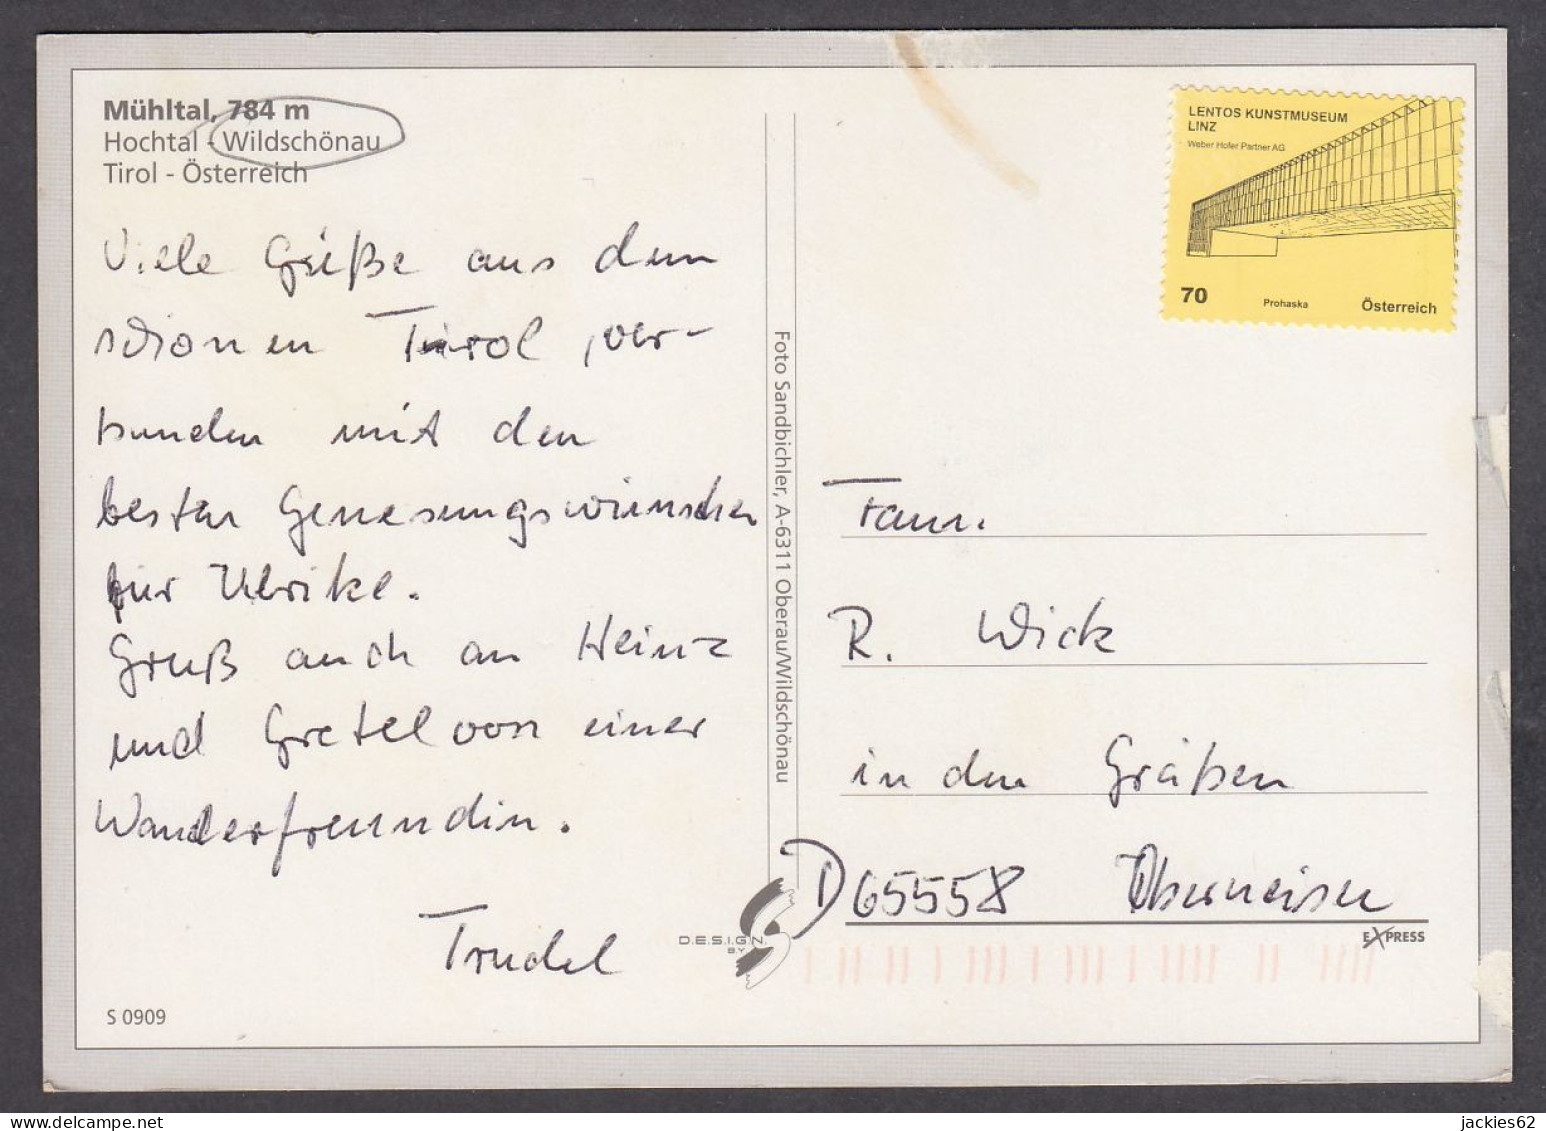 Mühltal, 784 m
Hochtal - Wildschönau
Tirol - Österreich
Viele Grüße aus dem
schönen Tirol, ver-
bunden mit den
besten Genesungswünschen
für Ulrike.
Gruß auch an Heinz
und Gretel von einer
Wanderfreundin.
Trudel
S 0909
D.E.S.I.G.N.
BY
Foto Sandbichler, A-6311 Oberau/Wildschönau
LENTOS KUNSTMUSEUM
LINZ
Weber Hofer Partner AG
70 Prohaska Österreich
Fam.
R. Wick
in den Gräben
D 65558 Oberneisen
EXPRESS
jackies62